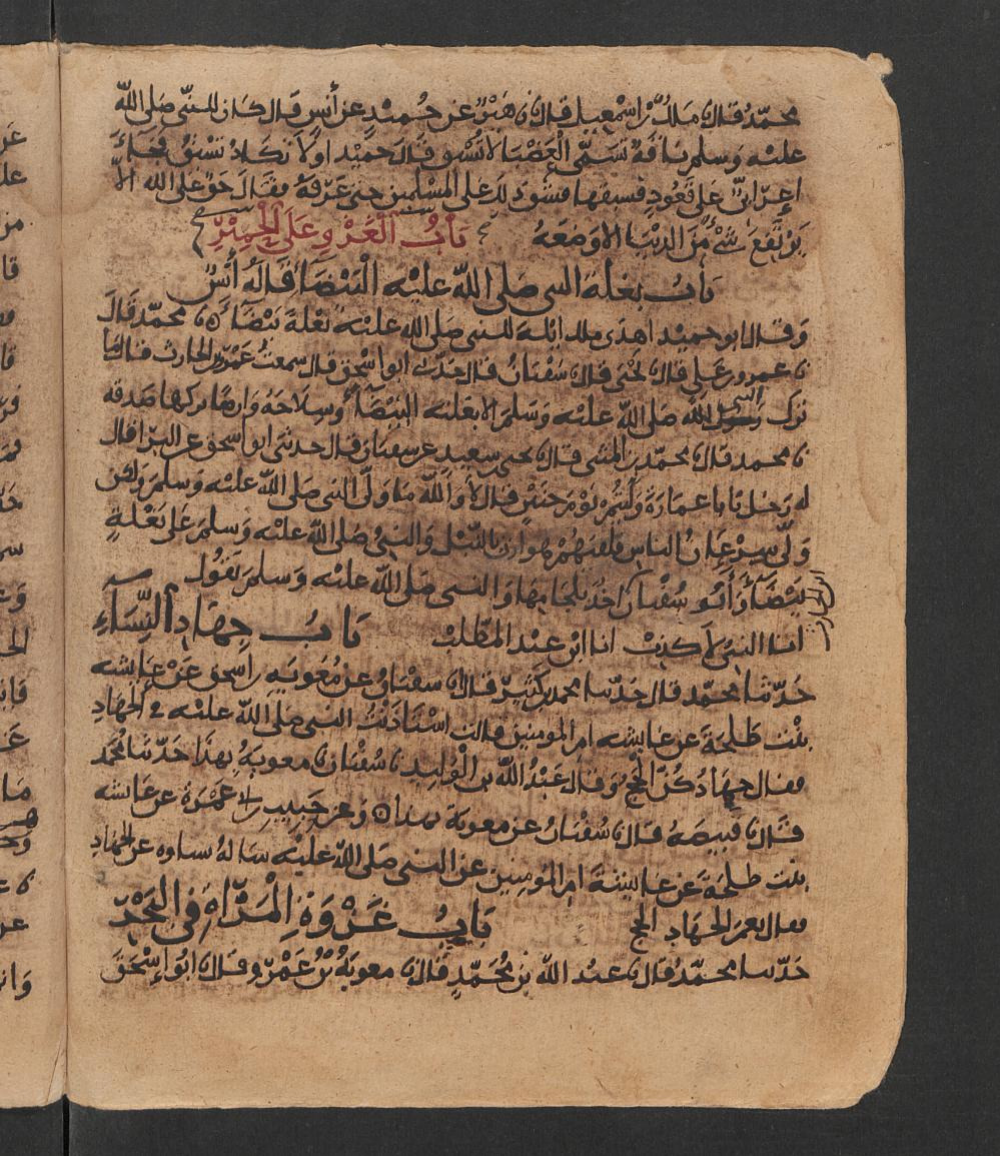 محمد قال نا ملك بن اسمعيل قال نا زهير عن حميد عن أنس قال كان للنبي صلى الله
عليه وسلم ناقة تسمى العضبا لا تسبق قال حميد او لا تكاد تسبق فجاء
اعرابي على قعود فسبقها فشق ذلك على المسلمين حتى عرفه فقال حق على الله الا
يرتفع شي من الدنيا الا وضعه باب الغزو على الحمير
باب بغلة النبي صلى الله عليه البيضا قاله أنس
وقال ابو حميد اهدى ملك ايلة للنبي صلى الله عليه بغلة بيضا نا محمد قال
نا عمرو بن علي قال نا يحيى قال نا سفيان قال حدثني ابو اسحق قال سمعت عمرو بن الحارث قال ما
ترك رسول الله النبي صلى الله عليه وسلم الا بغلته البيضا وسلاحه وارضا تركها صدقة
نا محمد قال نا محمد بن المثنى قال نا يحيى بن سعيد عن سفيان قال حدثني ابو اسحق عن البرا قال
له رجل يا با عمارة وليتم يوم حنين قال لا والله ما ولى النبي صلى الله عليه وسلم ولكن
ولى سرعان الناس فلقيهم هوازن بالنبل والنبي صلى الله عليه وسلم على بغلة
بيضا وأبو سفيان آخذ بلجامها والنبي صلى الله عليه وسلم يقول
ابن الحارث
انا النبي لا كذب انا ابن عبد المطلب باب جهاد النساء
حدثنا محمد قال حدثنا محمد بن كثير قال نا سفيان عن معوية بن اسحق عن عايشه
بنت طلحة عن عايشه ام المومنين قالت استاذنت النبي صلى الله عليه في الجهاد
فقال جهادكن الحج وقال عبد الله بن الوليد نا سفيان نا معوية بهذا حدثنا محمد
قال نا قبيصه قال نا سفيان عن معوية بهذا وعن حبيب بن أبي عمرة عن عايشه
بنت طلحة عن عايشة ام المومنين عن النبي صلى الله عليه ساله نساوه عن الجهاد
فقال نعم الجهاد الحج باب غزوة المرأة في البحر
حدثنا محمد قال نا عبد الله بن محمد قال نا معوية بن عمرو قال نا ابو إسحق